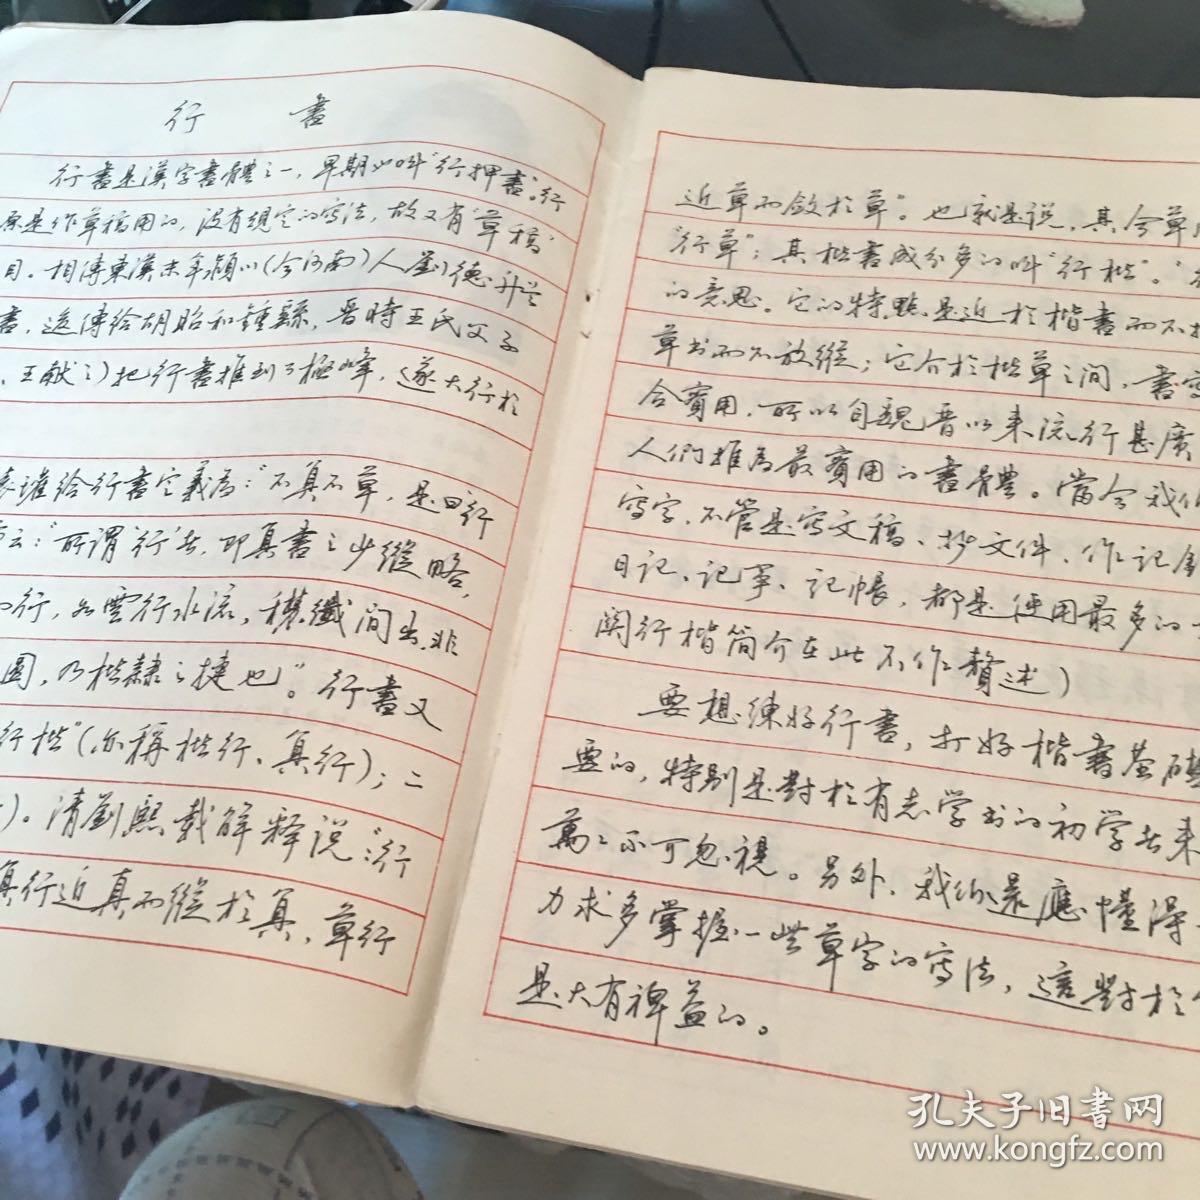 行 書
行書是漢字書體之一，早期也叫“行押書”。行
原是作草稿用的，没有規定的寫法，故又有“草稿”
目。相傳東漢末年潁川（今河南）人劉德升兰
書，後傳給胡昭和鍾繇，晋時王氏父子
、王献之）把行書推到了極峰，遂大行於
瓘给行書定義爲：“不真不草，是曰行
云：“所謂‘行’者，即真書之少縱略，
行，如雲行水流，穠纖间出，非
圆，乃楷隸之捷也”。行書又
行楷”（亦稱楷行、真行）；二
）。清劉熙载解释说：“行
真行近真而縱於真，草行
近草而斂於草”。也就是説，其含草
“行草”；其楷書成分多的叫“行楷”。
的意思。它的特點是近於楷書而不
草书而不放縱；它介於楷草之间，書寫
合實用，所以自魏晋以来流行甚廣
人们推爲最實用的書體。當今我
寫字，不管是寫文稿、抄文件、作記錄
日記、記事、記帳，都是使用最多的
関行楷简介在此不作贅述）
要想練好行書，打好楷書基礎
要的，特别是對於有志学书的初学者来
萬萬不可忽視。另外，我们還應懂得
力求多掌握一些草字的寫法，這對於
是大有裨益的。
孔夫子旧書网
www.kongfz.com